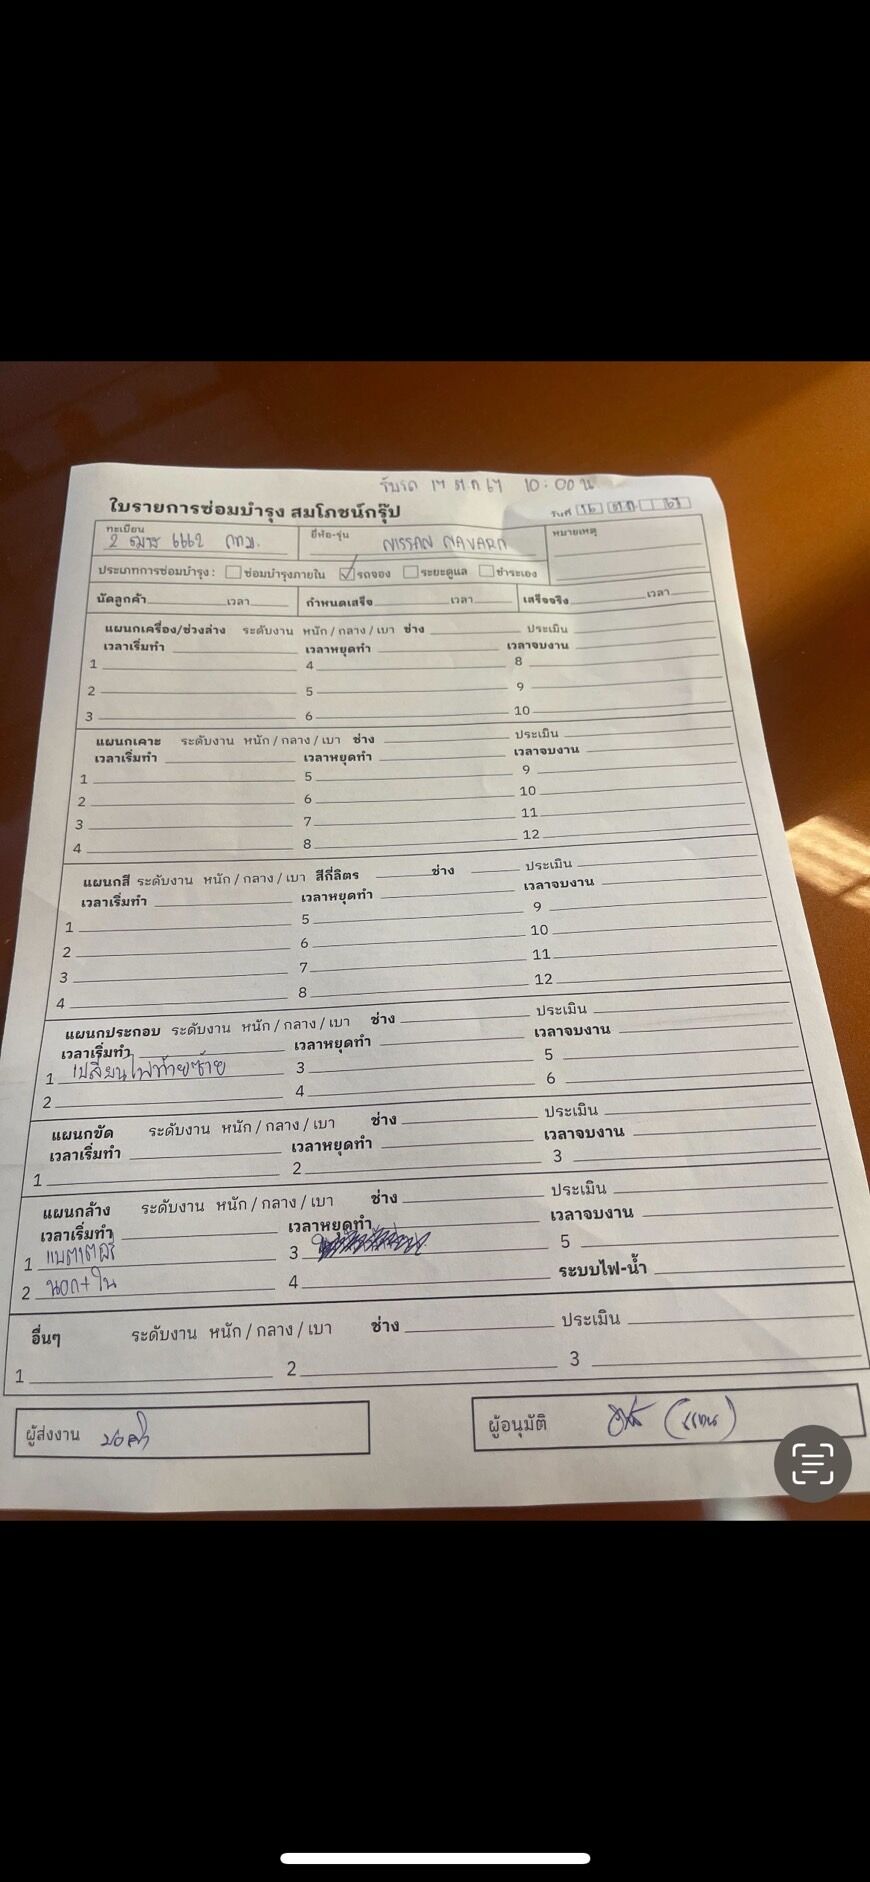 รับรถ 17 ต.ค 67 10:00 น
ใบรายการซ่อมบำรุง สมโภชน์กรุ๊ป
วันที่ 16 ต.ค 67
ทะเบียน 2 6662 กทม. ยี่ห้อ-รุ่น NISSAN NAVARA หมายเหตุ
ประเภทการซ่อมบำรุง : ซ่อมบำรุงภายใน ✓ รถจอง ระยะดูแล ชำระเอง
นัดลูกค้า เวลา กำหนดเสร็จ เวลา เสร็จจริง เวลา
แผนกเครื่อง/ช่วงล่าง ระดับงาน หนัก / กลาง / เบา ช่าง ประเมิน
เวลาเริ่มทำ เวลาหยุดทำ เวลาจบงาน
1 4 8
2 5 9
3 6 10
แผนกเคาะ ระดับงาน หนัก / กลาง / เบา ช่าง ประเมิน
เวลาเริ่มทำ เวลาหยุดทำ เวลาจบงาน
1 5 9
2 6 10
3 7 11
4 8 12
แผนกสี ระดับงาน หนัก / กลาง / เบา สีกี่ลิตร ช่าง ประเมิน
เวลาเริ่มทำ เวลาหยุดทำ เวลาจบงาน
1 5 9
2 6 10
3 7 11
4 8 12
แผนกประกอบ ระดับงาน หนัก / กลาง / เบา ช่าง ประเมิน
เวลาเริ่มทำ เวลาหยุดทำ เวลาจบงาน
1 เปลี่ยนไฟท้ายซ้าย 3 5
2 4 6
แผนกขัด ระดับงาน หนัก / กลาง / เบา ช่าง ประเมิน
เวลาเริ่มทำ เวลาหยุดทำ เวลาจบงาน
1 2 3
แผนกล้าง ระดับงาน หนัก / กลาง / เบา ช่าง ประเมิน
เวลาเริ่มทำ เวลาหยุดทำ เวลาจบงาน
1 แบตเตอรี่ 3 5
2 นอก+ใน 4 ระบบไฟ-น้ำ
อื่นๆ ระดับงาน หนัก / กลาง / เบา ช่าง ประเมิน
1 2 3
ผู้ส่งงาน ผู้อนุมัติ (แทน)